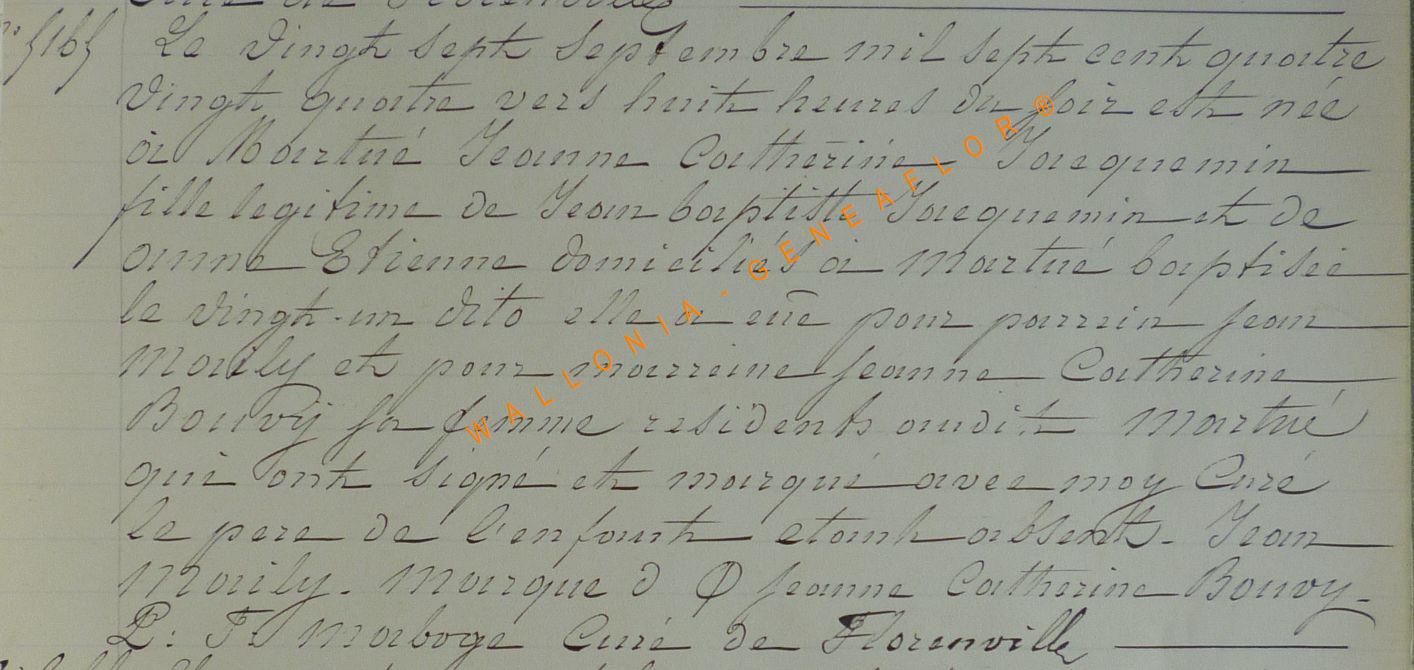 Curé de Florenville
n° 5165
Le vingt sept septembre mil sept cent quatre
vingt quatre vers huit heures du soir est née
à Martué Jeanne Catherine Jacquemin
fille legitime de Jean baptiste Jacquemin et de
anne Etienne domiciliés à Martué baptisée
le vingt-un dito elle a eue pour parrein jean
Maily et pour marreine jeanne Catherine
Bouvÿ sa femme residents audit Martué
qui ont signé et marqué avec moy Curé
le pere de l'enfant etant absent. Jean
Maily. Marque d Φ jeanne Catherine Bouvy.
P: F. Maboge Curé de Florenville
WALLONIA-GENEAFLOR®